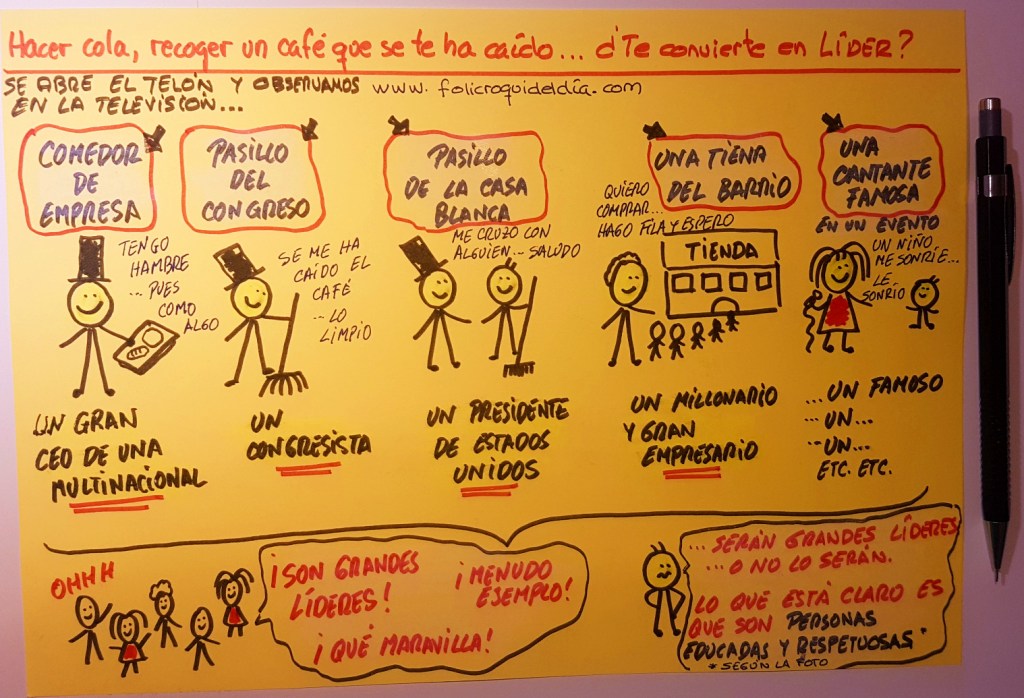 Hacer cola, recoger un café que se te ha caído... ¿Te convierte en LÍDER?
SE ABRE EL TELÓN Y OBSERVAMOS www.folicroquideldía.com
EN LA TELEVISIÓN...
COMEDOR
DE
EMPRESA
TENGO
HAMBRE
... PUES
COMO
ALGO
UN GRAN
CEO DE UNA
MULTINACIONAL
PASILLO
DEL
CONGRESO
SE ME HA
CAÍDO EL
CAFÉ
... LO
LIMPIO
UN
CONGRESISTA
PASILLO
DE LA CASA
BLANCA
ME CRUZO CON
ALGUIEN... SALUDO
UN PRESIDENTE
DE ESTADOS
UNIDOS
UNA TIENA
DEL BARRIO
QUIERO
COMPRAR...
HAGO FILA Y ESPERO
TIENDA
UN MILLONARIO
Y GRAN
EMPRESARIO
UNA
CANTANTE
FAMOSA
EN UN EVENTO
UN NIÑO
ME SONRÍE...
LE
SONRIO
... UN FAMOSO
... UN...
... UN...
ETC. ETC.
OHHH
¡SON GRANDES
LÍDERES!
¡MENUDO
EJEMPLO!
¡QUÉ MARAVILLA!
... SERÁN GRANDES LÍDERES
... O NO LO SERÁN.
LO QUE ESTÁ CLARO ES
QUE SON PERSONAS
EDUCADAS Y RESPETUOSAS*
* SEGÚN LA FOTO